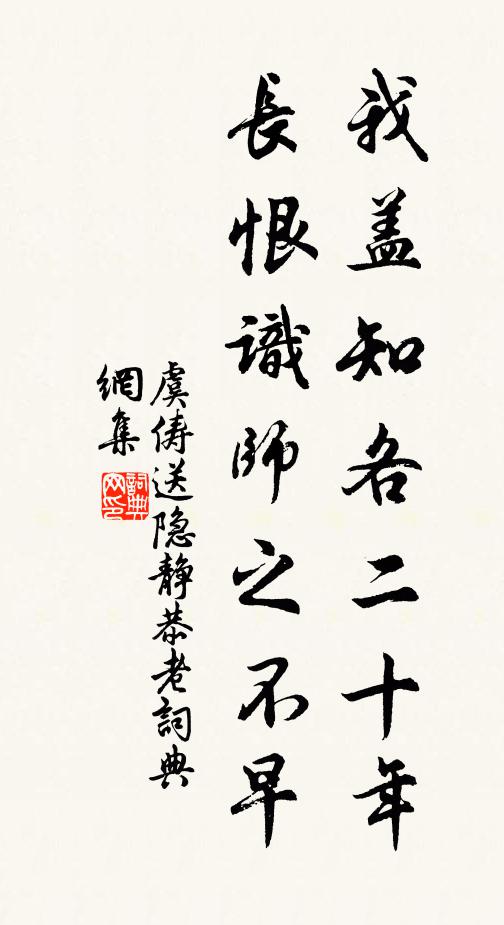 我盖知名二十年
長恨識師之不早
虞俦送隐静恭老詞典
網集
詞典网印